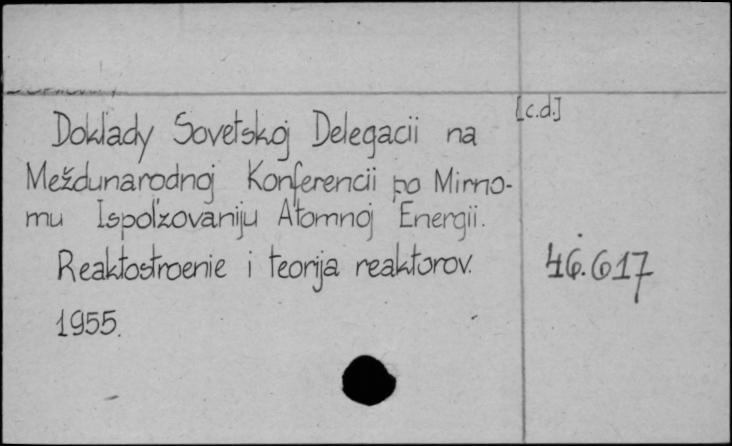 [c.d.]
Doklady Sovetskoj Delegacii na
Meždunarodnoj Konferencii po Mirno-
mu Ispol'zovaniju Atomnoj Energii.
Reaktostroenie i teorija reaktorov.
46.617
1955.